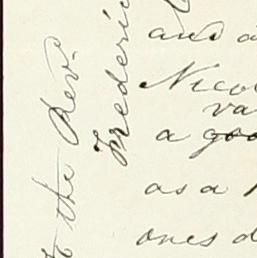 to the Rev.
Frederic
and a
Nicol
va
a goo
as a
ones d